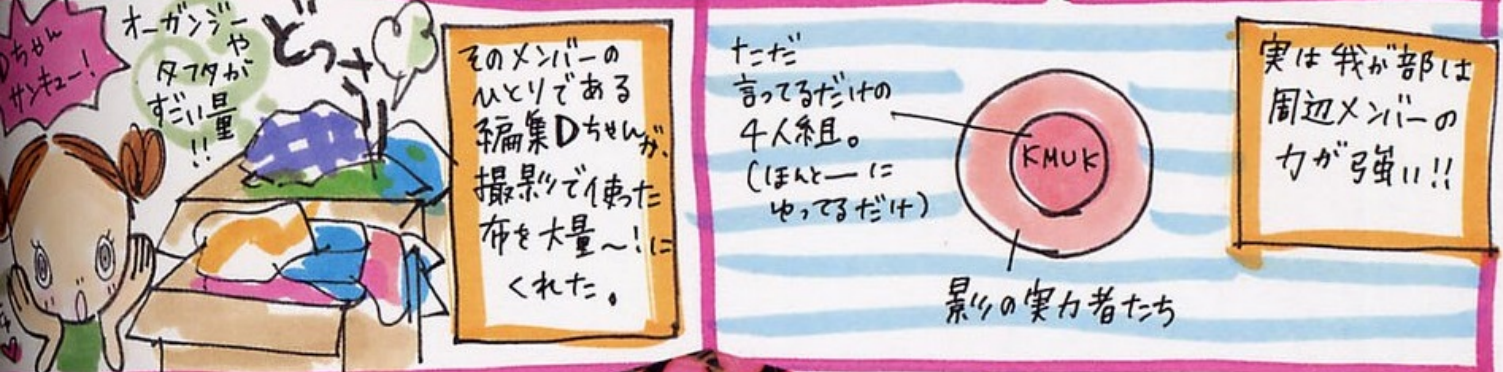 実は我が部は
周辺メンバーの
力が強い!!
ただ
言ってるだけの
4人組。
(ほんとーに
ゆってるだけ)
KMUK
影の実力者たち
そのメンバーの
ひとりである
編集Dちゃんが、
撮影で使った
布を大量〜!に
くれた。
どっさり
オーガンジーや
タフタが
すごい量
!!
Dちゃん
サンキュー!